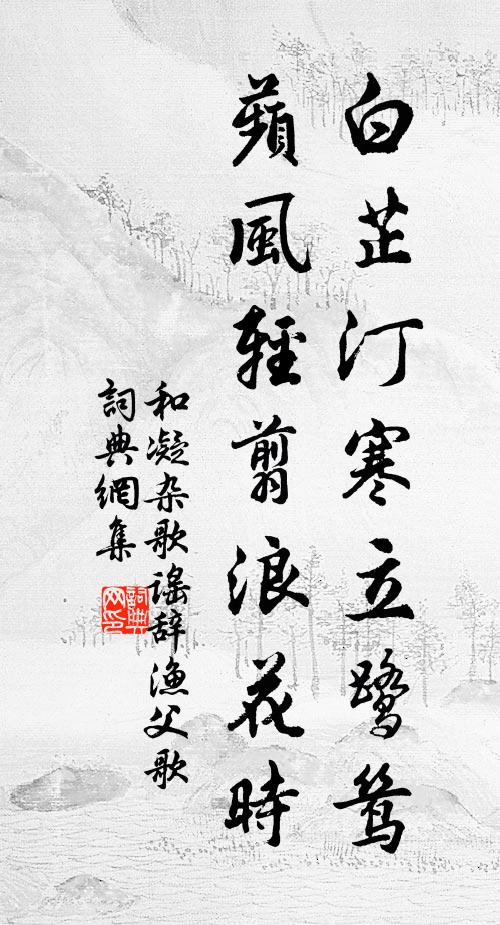 白芷汀寒立鹭鸶
蘋風輕翦浪花時
和凝杂歌谣辞渔父歌
詞典網集
詞典网印